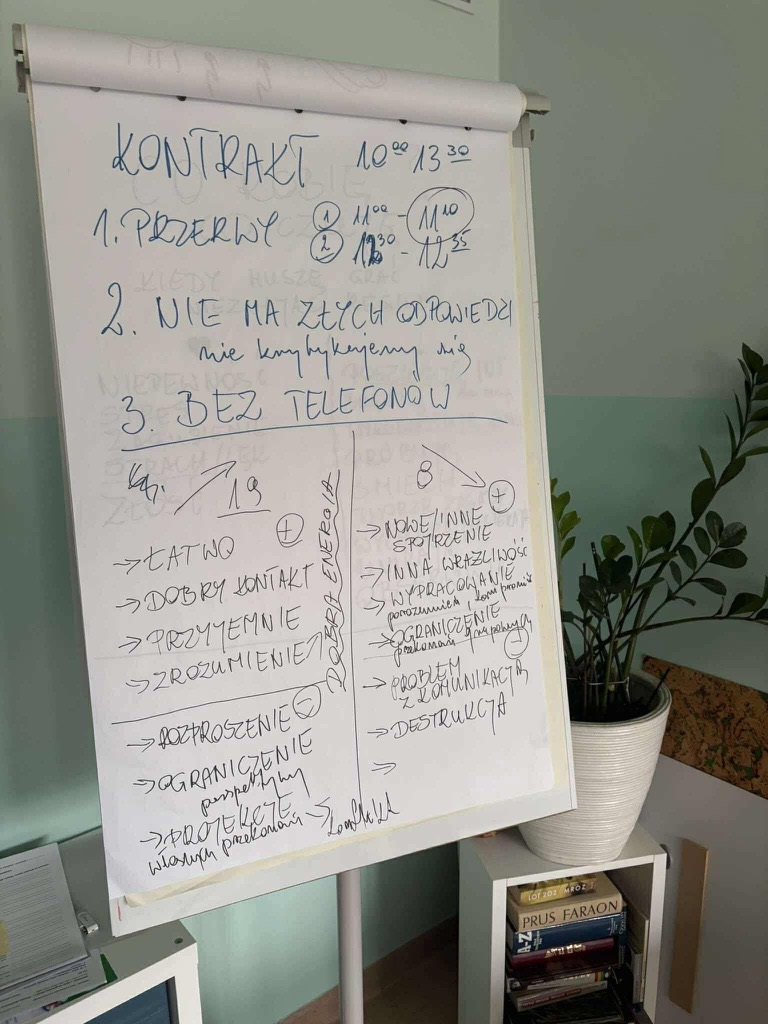 KONTRAKT 10⁰⁰ 13³⁰
1. PRZERWY ① 11⁰⁰ - 11¹⁰
② 12³⁰ - 12³⁵
2. NIE MA ZŁYCH ODPOWIEDZI
nie krytykujemy się
3. BEZ TELEFONÓW
19
+
→ ŁATWO
→ DOBRY KONTAKT
→ PRZYJEMNIE
→ ZROZUMIENIE
DOBRA ENERGIA
-
→ ROZPROSZENIE
→ OGRANICZENIE
perspektywy
→ PROJEKCJE
własnych przekonań →
8
+
→ NOWE/INNE
SPOJRZENIE
→ INNA WRAŻLIWOŚĆ
→ WYPRACOWANIE
porozumień i kompromis
→ OGRANICZENIE
przekonań grupowych
-
→ PROBLEM
Z KOMUNIKACJĄ
→ DESTRUKCJA
→
LOT 202 MRÓZ
PRUS FARAON
A-Z